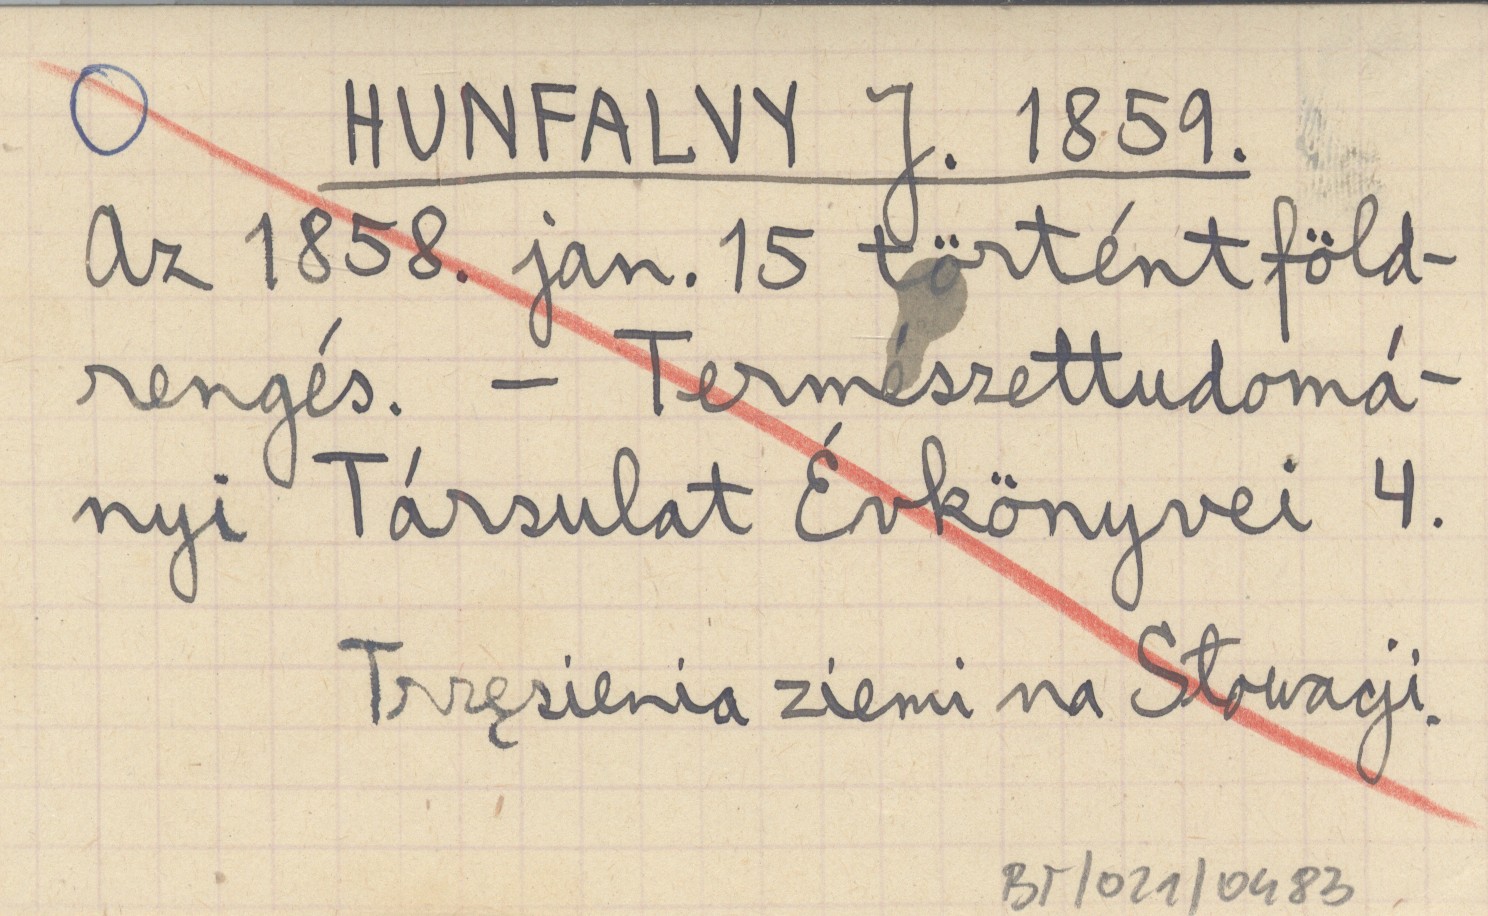 HUNFALVY J. 1859.
Az 1858. jan. 15 történt föld-
rengés. – Természettudomá-
nyi Társulat Évkönyvei 4.
Trzęsienia ziemi na Słowacji.
BT/021/0483